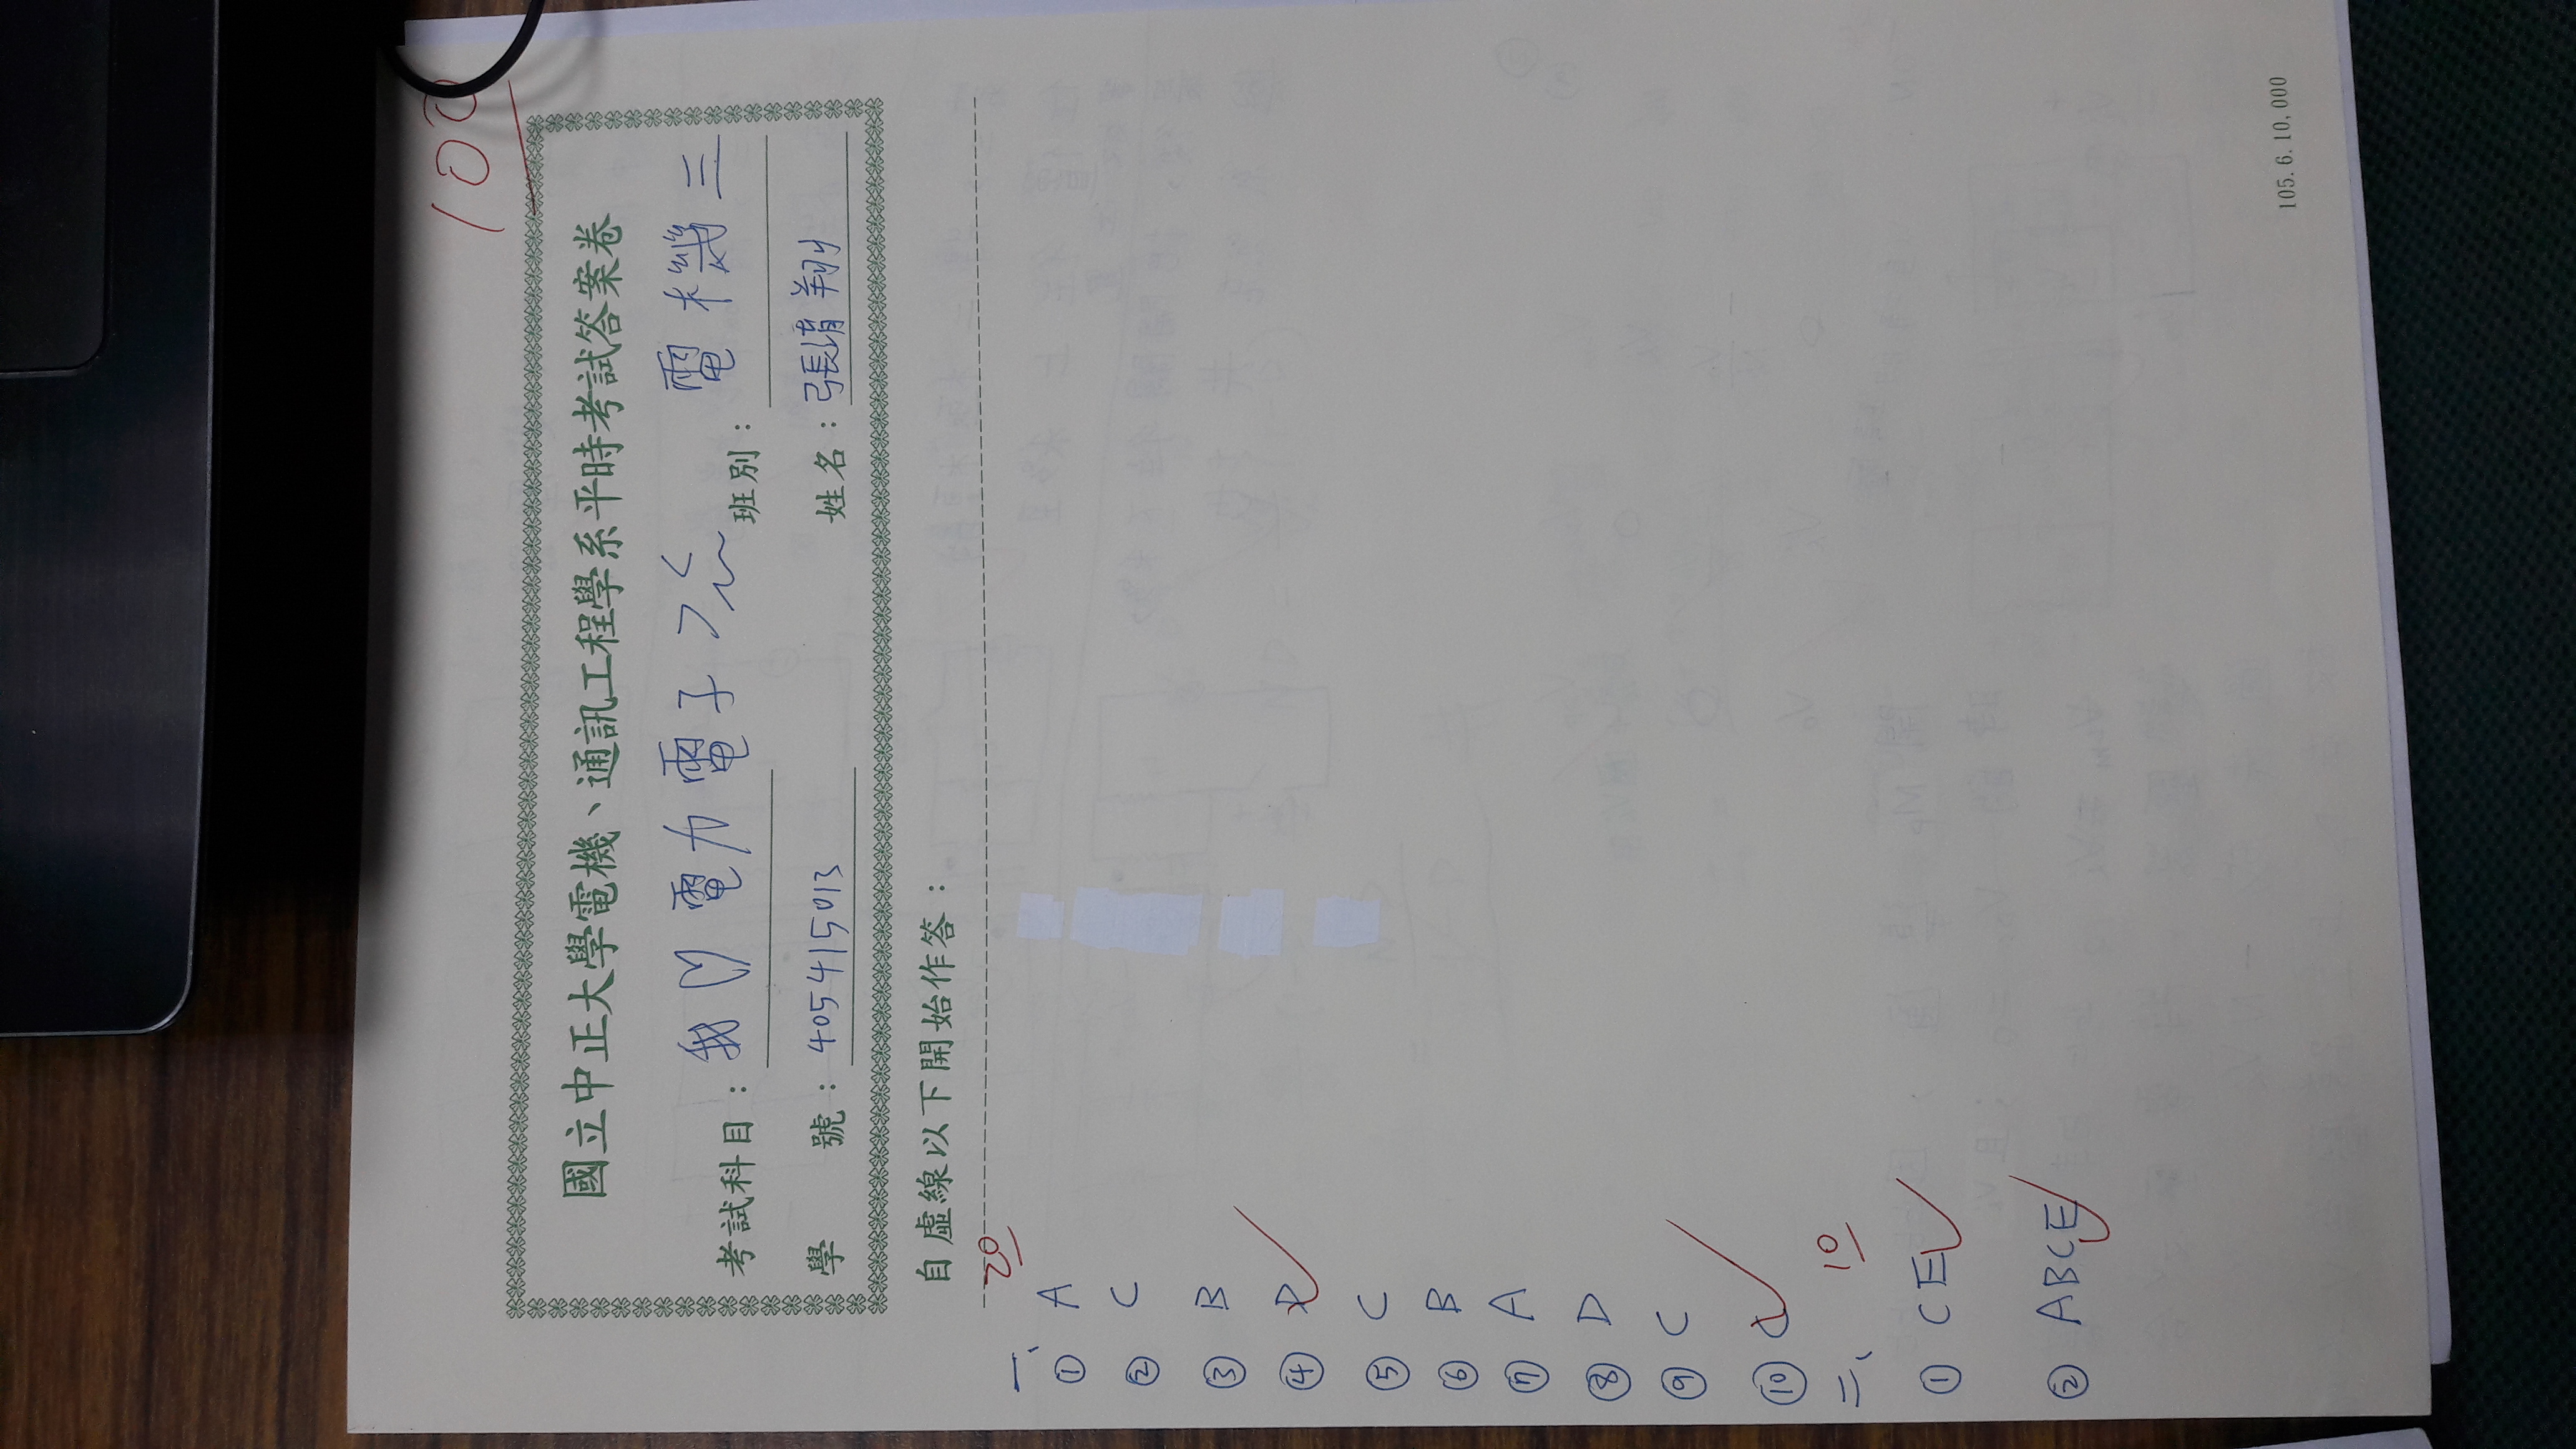 100
國立中正大學電機、通訊工程學系平時考試答案卷
考試科目：我♡電力電子 班別：電機三
學 號：405415013 姓名：張清翔
自虛線以下開始作答：
一、 20
① A
② C
③ B
④ D
⑤ C
⑥ B
⑦ A
⑧ D
⑨ C
⑩ C
二、 10
① CE
② ABCE
105.6.10,000